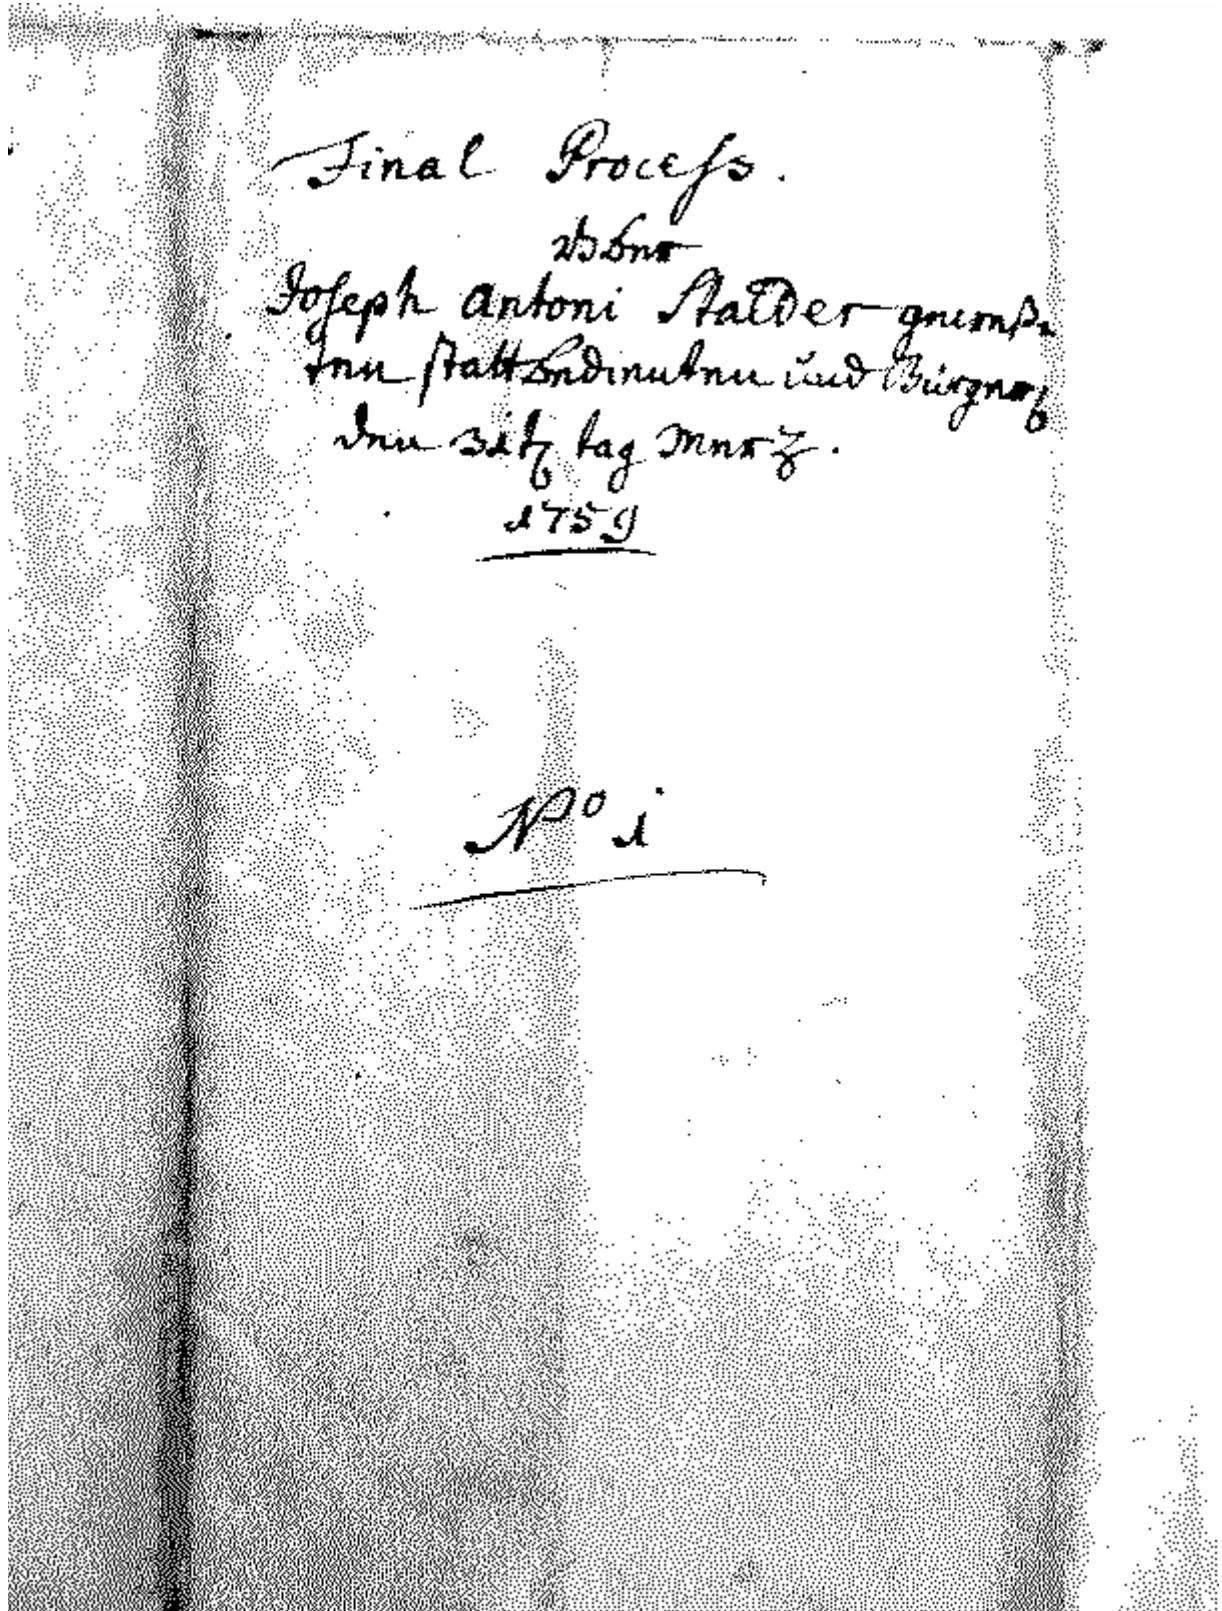 Final Process.
Über
Joseph Antoni Stalder geweße-
nen stattbedienten und Burgerß
den 31tß tag Mertz.
1759
No 1